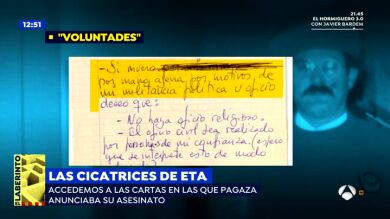 12:51
"VOLUNTADES"
21.45
EL HORMIGUERO 3.0
CON JAVIER BARDEM
- Si muero
por mano ajena por motivos de
mi militancia política u oficio
deseo que:
- No haya oficio religioso.
- El oficio civil sea realizado
por personas de mi confianza. (espero
que se interprete esto de modo
LABERINTO
LAS CICATRICES DE ETA
ACCEDEMOS A LAS CARTAS EN LAS QUE PAGAZA
ANUNCIABA SU ASESINATO